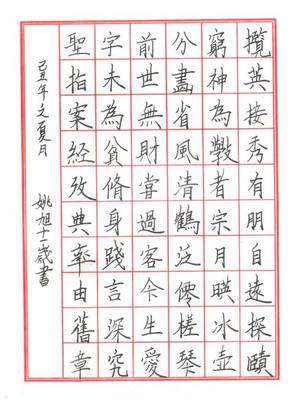 攬英接秀有朋自遠探賾
窮神為斆者宗月暎冰壺
分畫省風清鶴泛僊槎琴
前世無財當過客今生愛
字未為貧脩身踐言深究
聖指案經攷典率由舊章
己丑年之夏月 姚旭十一歲書